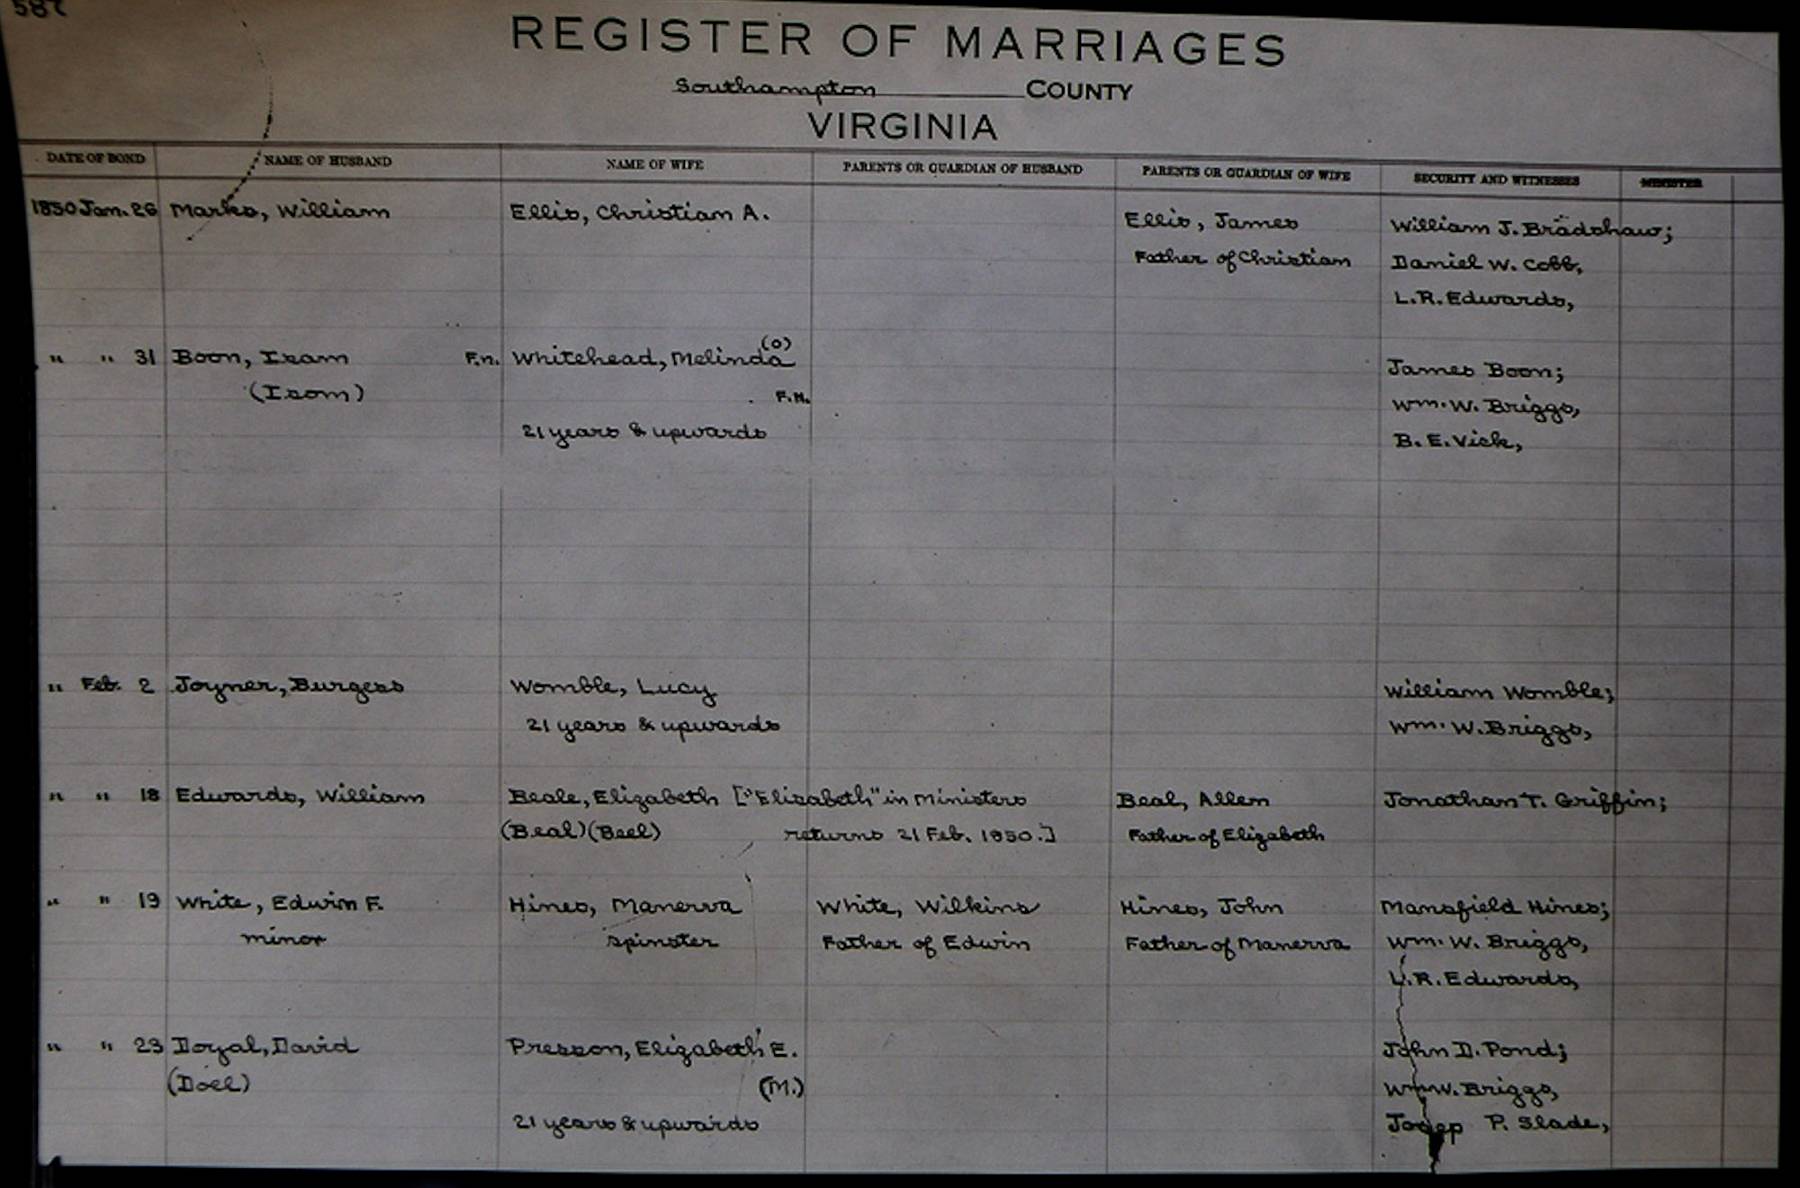 587
REGISTER OF MARRIAGES
Southampton COUNTY
VIRGINIA
DATE OF BOND NAME OF HUSBAND NAME OF WIFE PARENTS OR GUARDIAN OF HUSBAND PARENTS OR GUARDIAN OF WIFE SECURITY AND WITNESSES MINISTER
1850 Jan. 26 Marks, William Ellis, Christian A. Ellis, James William J. Bradshaw;
Father of Christian Daniel W. Cobb,
L.R. Edwards,
(o)
" " 31 Boon, Isam F.n. Whitehead, Melinda James Boon;
(Isom) F.N. Wm. W. Briggs,
21 years & upwards B. E. Vick,
" Feb. 2 Joyner, Burgess Womble, Lucy William Womble;
21 years & upwards Wm. W. Briggs,
" " 18 Edwards, William Beale, Elizabeth ["Elisabeth" in Ministers Beal, Allen Jonathan T. Griffin;
(Beal) (Beel) returns 21 Feb. 1850.] Father of Elizabeth
" " 19 White, Edwin F. Hines, Manerva White, Wilkins Hines, John Mansfield Hines;
minor spinster Father of Edwin Father of Manerva Wm. W. Briggs,
L.R. Edwards,
" " 23 Doyal, David Presson, Elizabeth E. John D. Pond;
(Doel) (M.) Wm W. Briggs,
21 years & upwards Josep P. Slade,